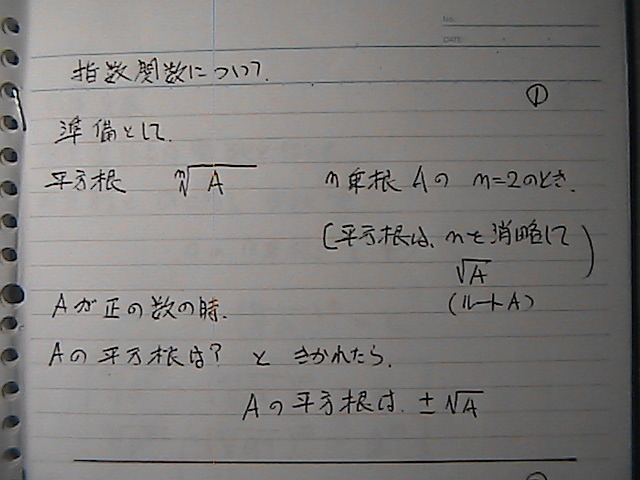 NO.
DATE
指数関数について.
①
準備として.
平方根 ⁿ√A n乗根 Aの n=2のとき.
(平方根は、nを消略して
√A
(ルートA)
Aが正の数の時.
Aの平方根は? と きかれたら.
Aの平方根は. ±√A